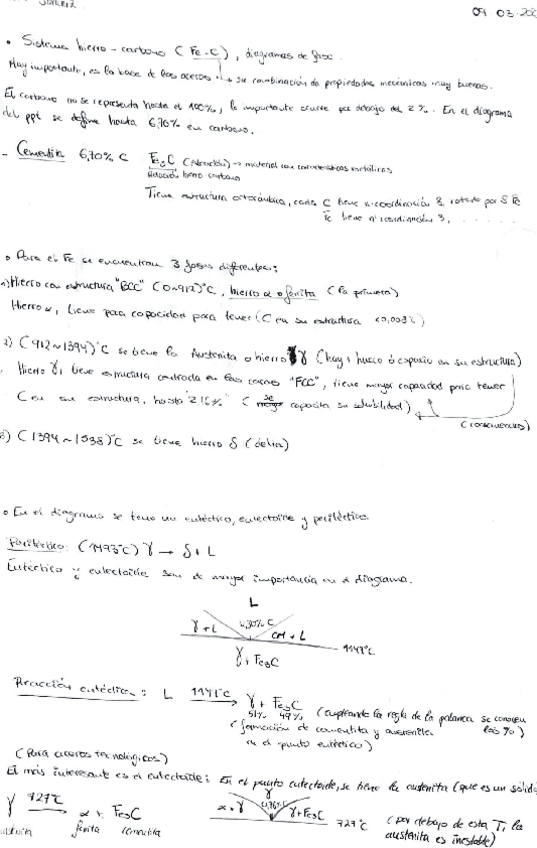 09 03 202
• Sistema hierro - carbono (Fe-C), diagramas de fase.
Muy importante, es la base de los aceros → su combinación de propiedades mecánicas muy buenas.
El carbono no se representa hasta el 100%, lo importante ocurre por debajo del 2%. En el diagrama
del ppt se define hasta 6,70% en carbono.
- Cementita 6,70% C Fe3C → material con características metálicas
hierro carbono
Tiene estructura ortorómbica, cada C tiene nºcoordinación 8, rodeado por 8 Fe
Fe tiene nºcoordinación 3,
• Para el Fe se encuentran 3 fases diferentes:
Hierro con estructura "BCC" (0-912)ºC, hierro α o ferrita (la primera)
Hierro α, tiene poca capacidad para tener C en su estructura
2) (912~1394)ºC se tiene la Austenita o hierro γ (hay 1 hueco o espacio en su estructura)
Hierro γ, tiene estructura centrada en las caras "FCC", tiene mayor capacidad para tener
C en su estructura, hasta 2,16% (se capacita su solubilidad)
(consecuencias)
3) (1394~1538)ºC se tiene hierro δ (delta)
• En el diagrama se tene un eutéctico, eutectoide y peritéctico.
Peritéctico: (1493ºC) γ → δ + L
Eutéctico y eutectoide son de mayor importancia en el diagrama.
L
γ+L 4,30% C CM + L 1147ºC
γ + Fe3C
Reacción eutéctica: L 1147ºC → γ + Fe3C (empleando la regla de la palanca se conocen
51% 49% los %)
(formación de cementita y austenita
en el punto eutéctico)
(Para aceros tecnológicos)
El más interesante es el eutectoide: En el punto eutectoide, se tiene la austenita (que es un sólido
γ 727ºC → α + Fe3C α+γ γ 0,76% γ+Fe3C 727ºC (por debajo de esta T, la
ferrita cementita austenita es inestable)